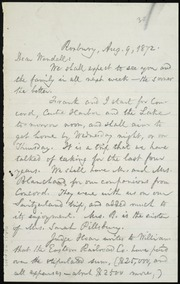 Roxbury, Aug. 9, 1872.
Dear Wendell:
We shall expect to see you and
the family in all next week — the sooner
the better.
Frank and I start for Con-
cord, Centre Harbor and the Lake
to-morrow noon, and shall aim to
get home by Wednesday night, or on
Thursday. It is a trip that we have
talked of taking for the last four
years. We shall have Mr. and Mrs.
Blanchard for our companions from
Concord. They were with us on our
Switzerland trip, and added much to
its enjoyment. Mrs. B. is the sister
of Mrs. Sarah Pillsbury.
Judge Hoar writes to William
that the Eastern Railroad Co. have paid
over the stipulated sum, ($25,000, and
all expenses — about $2500 more,)